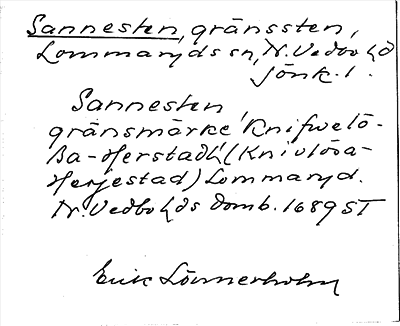 Sannesten, gränssten,
Lommaryds sn, N. Vedbo hd
Jönk. l.
Sannesten
gränsmärke Knifwelö-
ßa-Herstadh (Knivlösa-
Herjestad) Lommaryd.
N. Vedbo hds domb. 1689 ST
Erik Lönnerholm